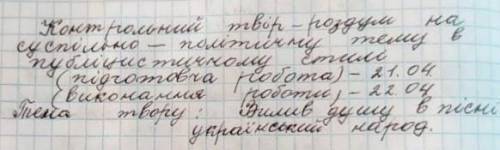 Контрольний твір – роздум на
суспільно – політичну тему в
публіцистичному стилі
(підготовча робота) – 21.04
(виконання роботи) – 22.04
Тема твору: Вилив душу в пісні
український народ.